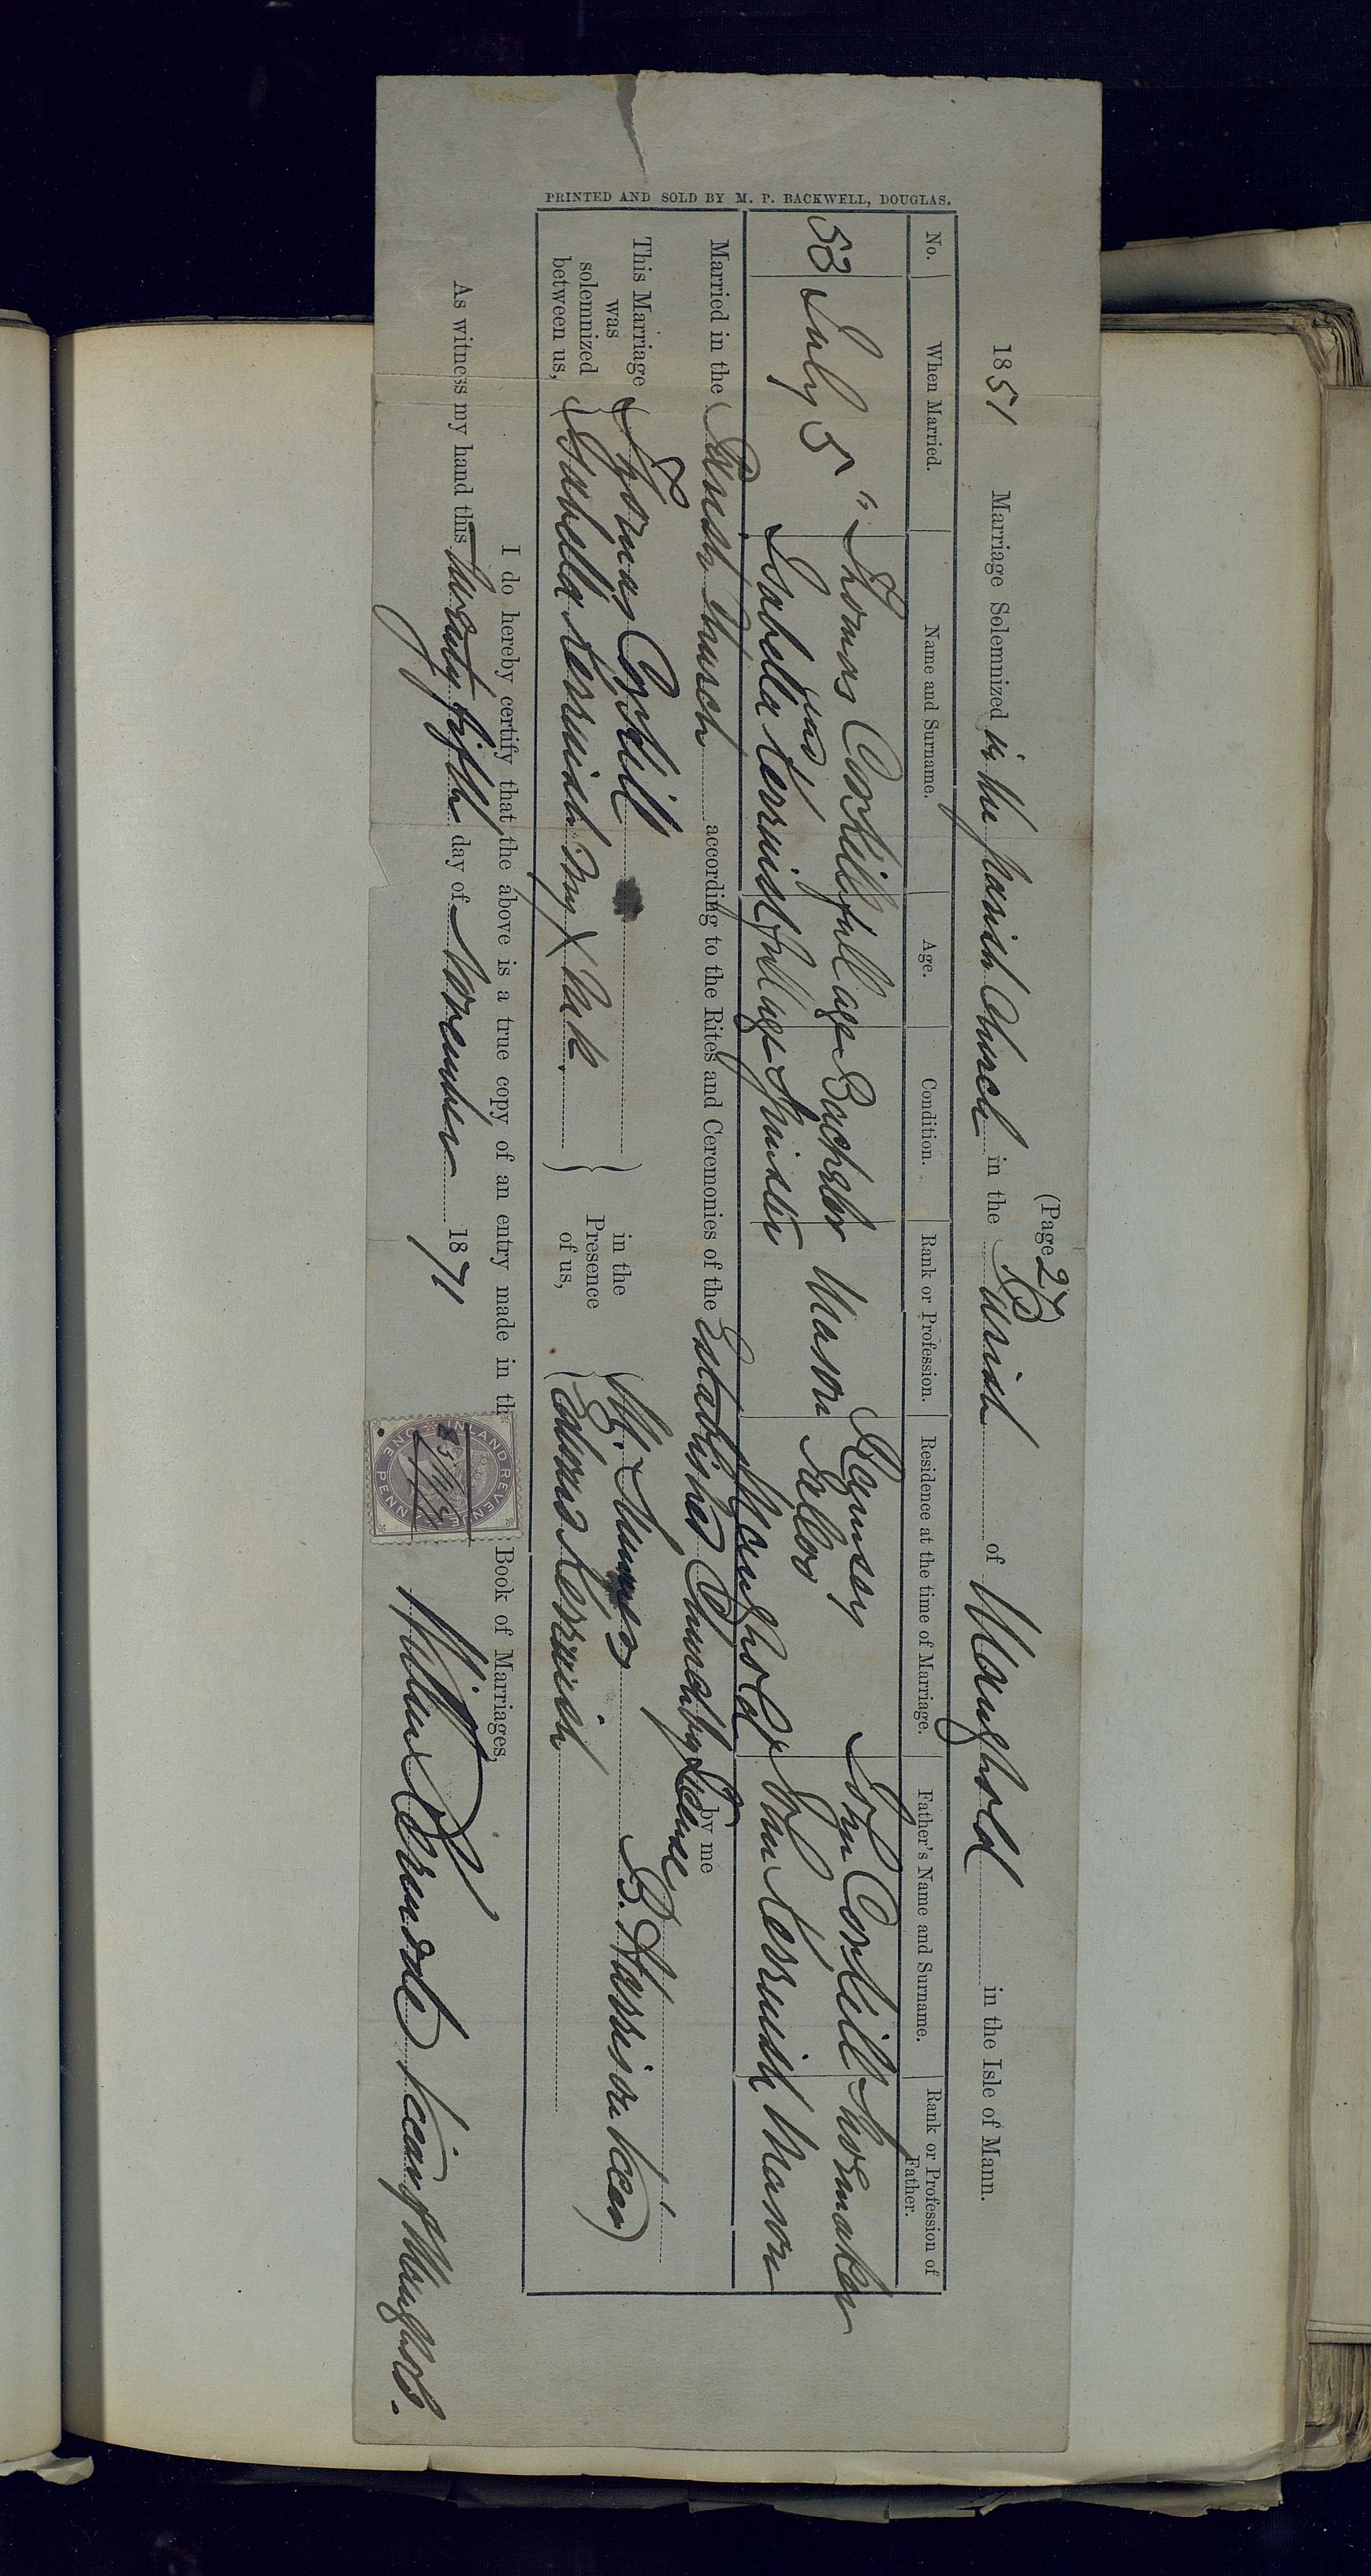 (Page 27)
1851 Marriage Solemnized in the parish Church in the Parish of Maughold in the Isle of Mann.
No. When Married. Name and Surname. Age. Condition. Rank or Profession. Residence at the time of Marriage. Father's Name and Surname. Rank or Profession of Father.
53 July 5" Thomas Corkill full age Bachelor Mason Ramsey John Corkill Shoemaker
and
Isabella Kerruish full age Spinster Maughold John Kerruish Mason
Married in the Parish Church according to the Rites and Ceremonies of the Established Church by License by me
This Marriage was solemnized between us,
Thomas Corkill
Isabella Kerruish My X Mark
in the Presence of us,
Edward Kerruish
B. Harrison Vicar
I do hereby certify that the above is a true copy of an entry made in th Book of Marriages,
As witness my hand this twenty fifth day of November 1871
William Vicar of Maughold.
INLAND REVENUE
ONE PENNY
PRINTED AND SOLD BY M. P. BACKWELL, DOUGLAS.